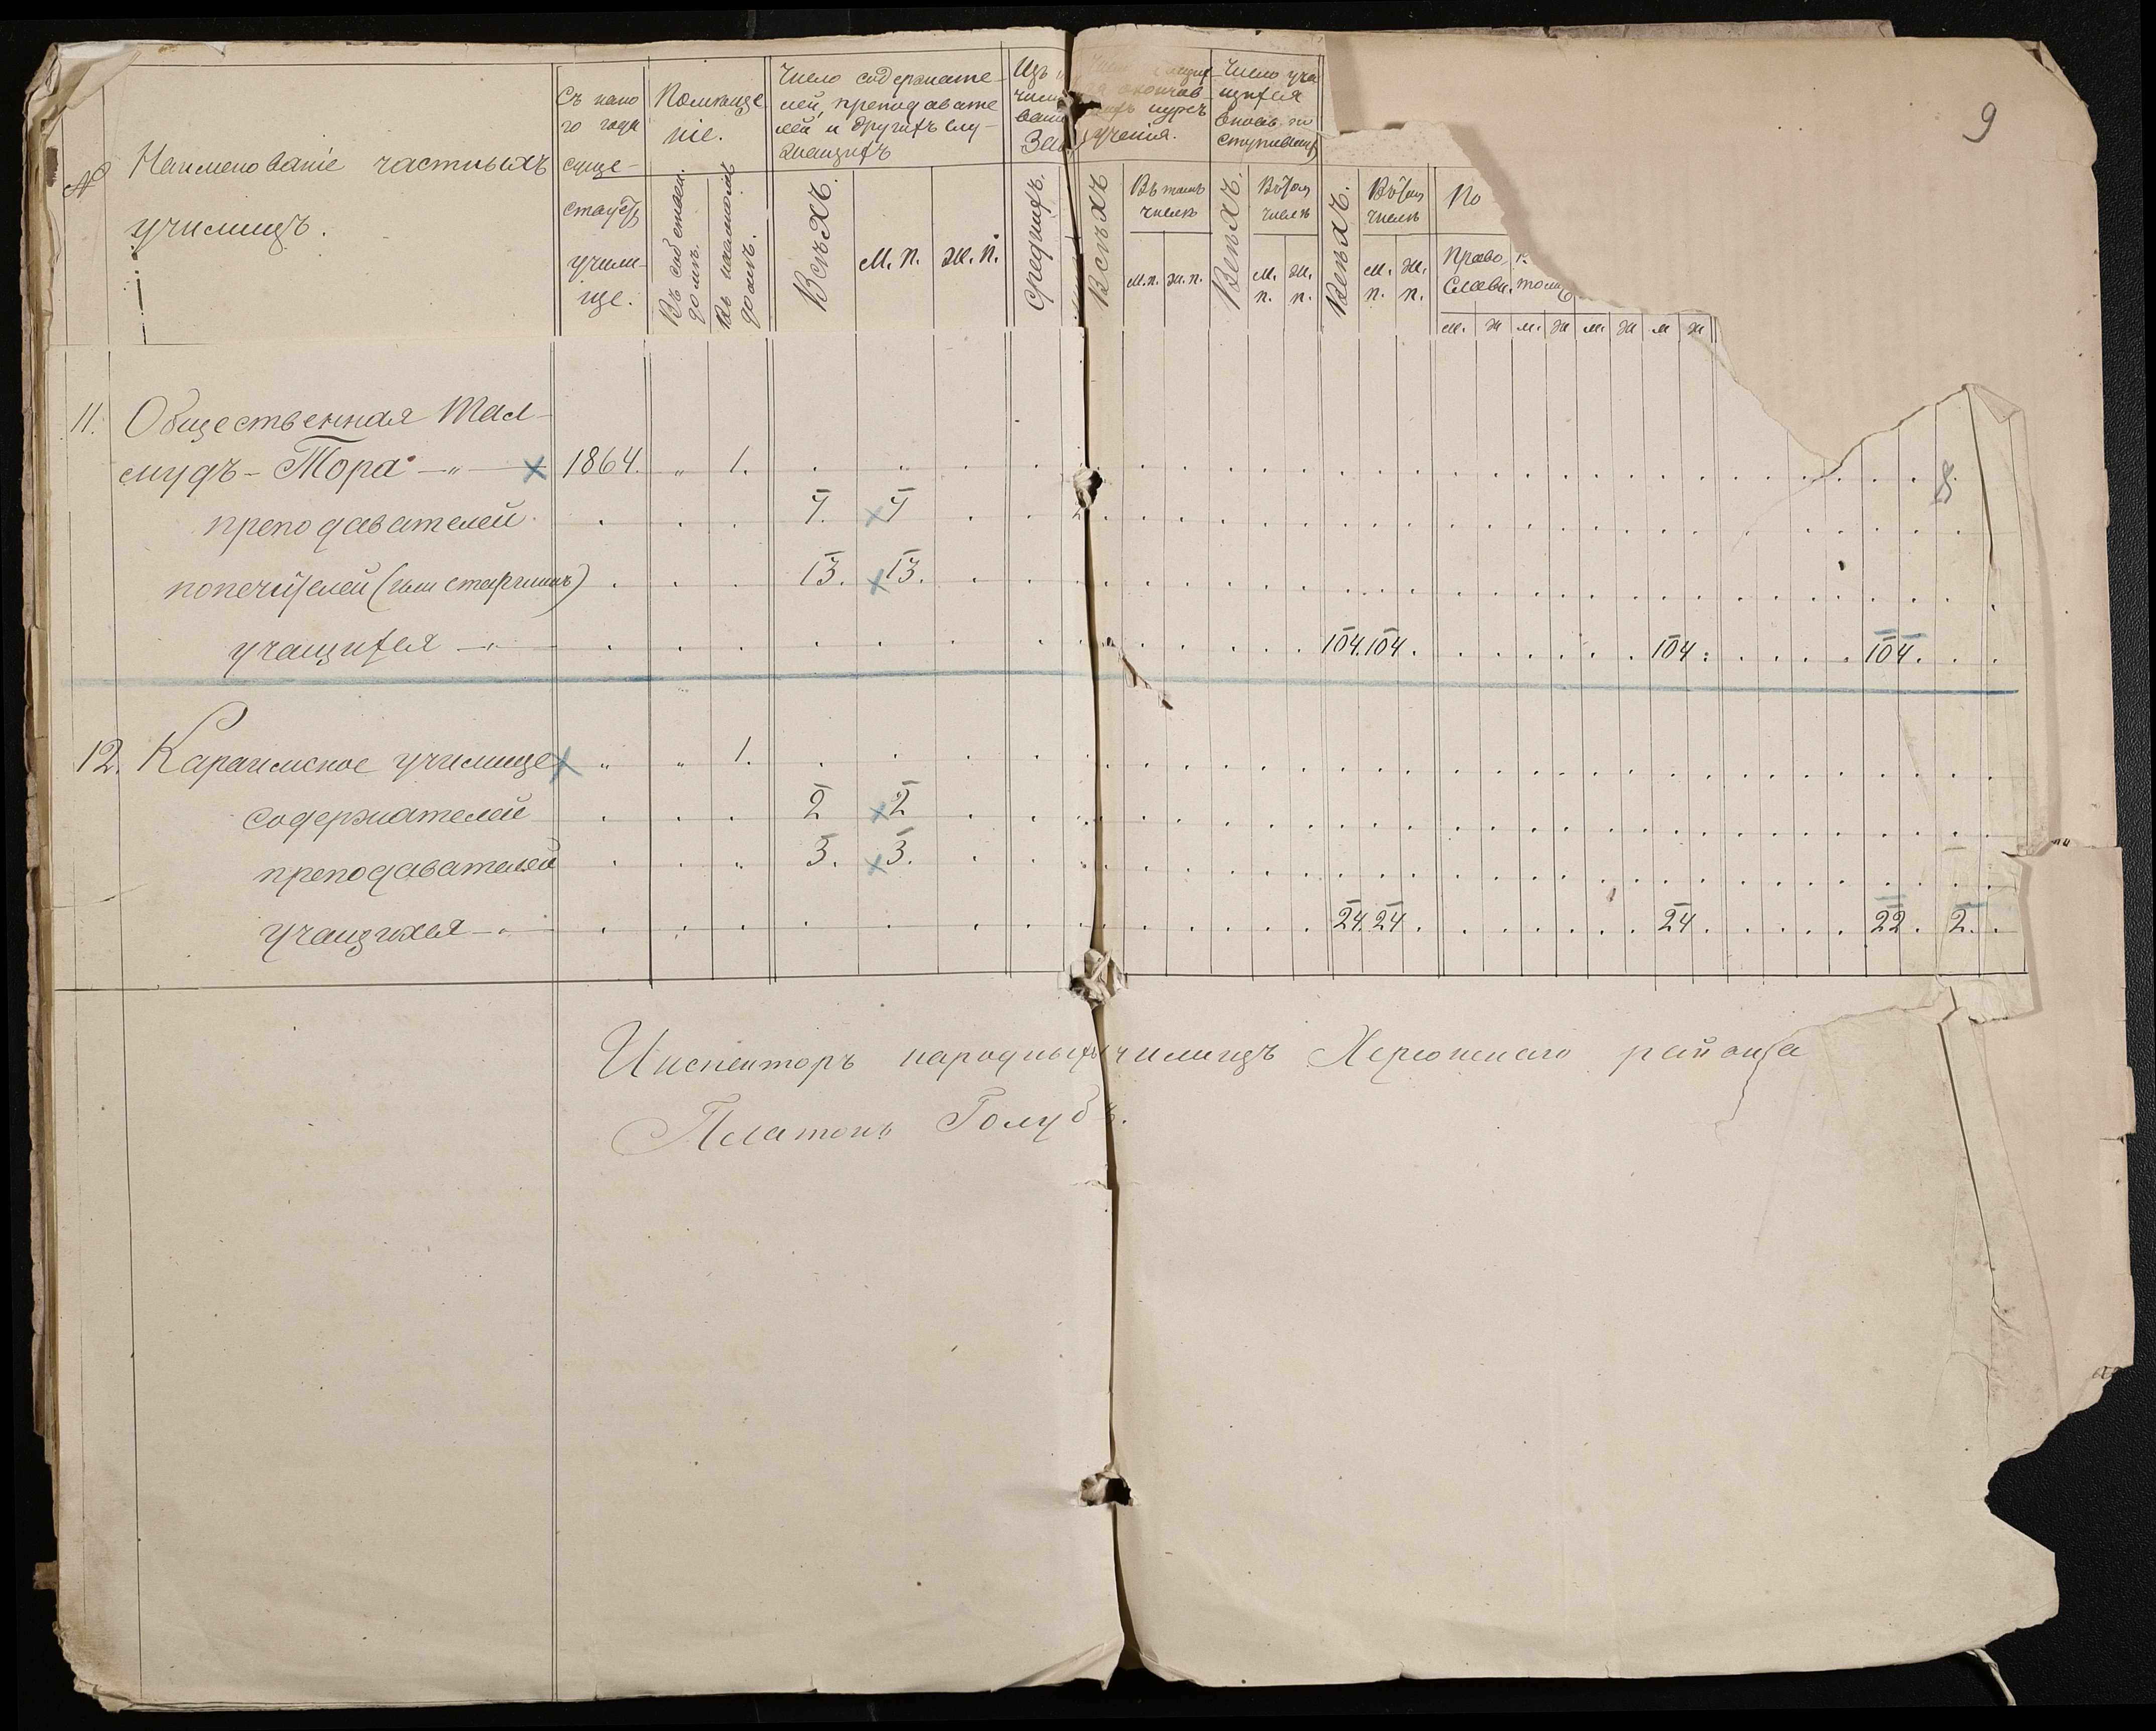 9
№
Наименованіе частныхъ
училищъ.
Съ како
го года
суще-
ствуетъ
учили-
ще.
Помѣще
ніе.
Въ собствен.
домѣ.
Въ наемномъ
домѣ.
Число содержате-
лей, преподавате
лей и другихъ слу-
жащихъ
Всѣхъ.
м. п.
ж. п.
Изъ
Среднихъ.
курсъ
ученія.
Всѣхъ
Въ томъ
числѣ
м. п. ж. п.
Число уча
щихся
вновь по
ступивших
Всѣхъ.
Въ том
числѣ
м. п.
ж. п.
Всѣхъ.
Въ том
числѣ
м. п.
ж. п.
По
Право-
славн.
м. ж м. ж м. ж м ж
11. Общественная Тал-
мудъ-Тора 1864. „ 1.
преподавателей. 7. 7
попечителей (или старшинъ) 13. 13.
учащихся 104. 104. 104. 104.
12. Караимское училище „ „ 1.
содержателей 2 2
преподавателей 3. 3.
учащихся 24. 24. 24. 22. 2.
Инспекторъ народныхъ училищъ Херсонскаго района
Платонъ Голубъ.